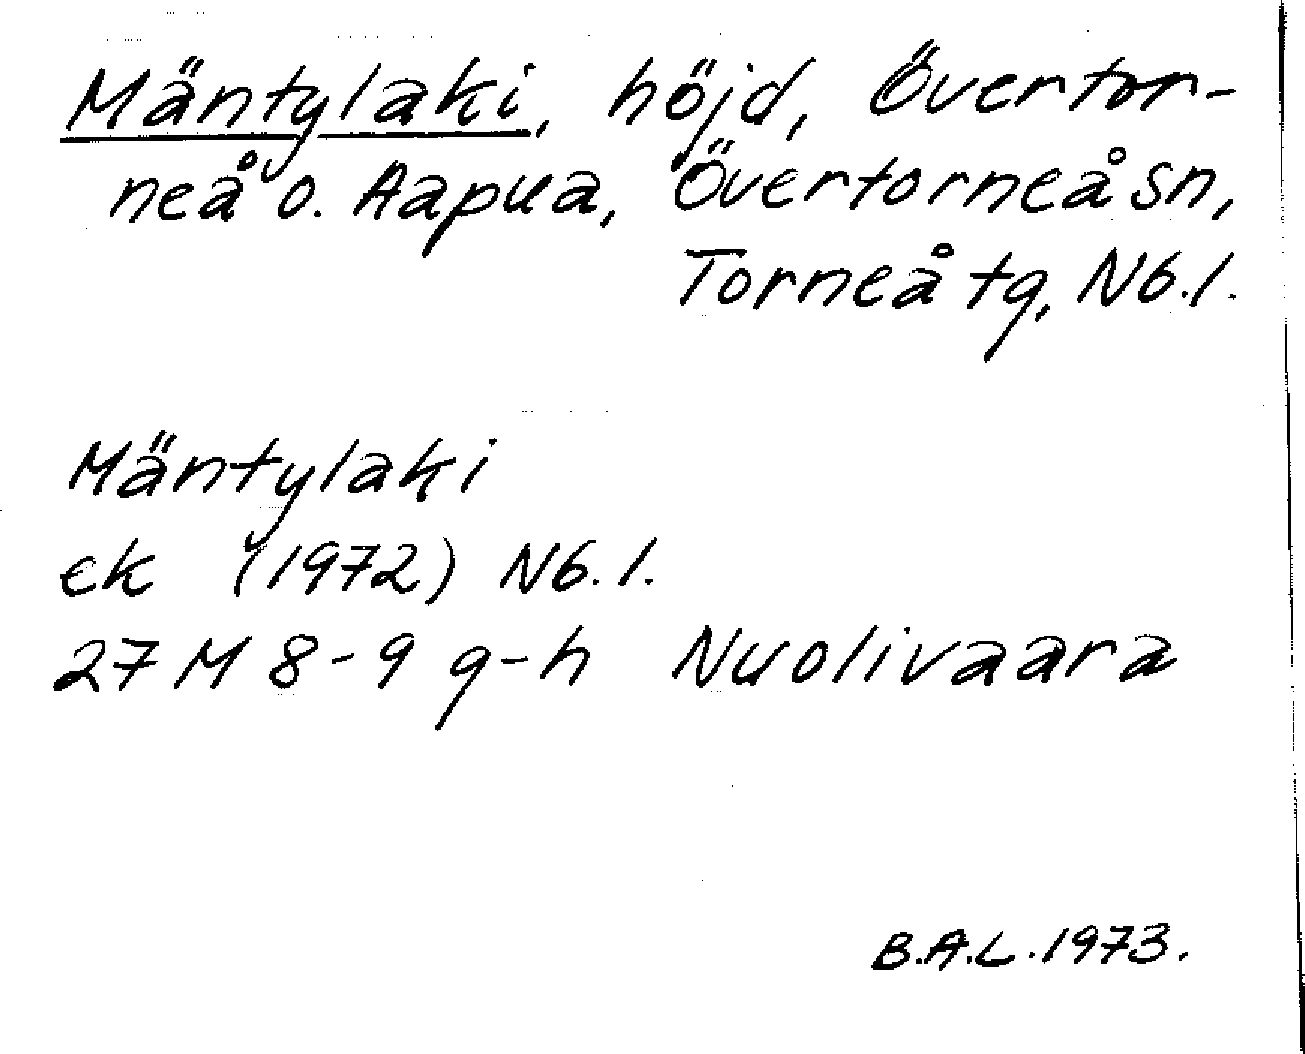 Mäntylaki, höjd, Övertor-
neå o. Aapua, Övertorneå sn,
Torneå tg, Nb.l.
Mäntylaki
ek (1972) Nb.l.
27 M 8-9 g-h Nuolivaara
B.A.L. 1973.